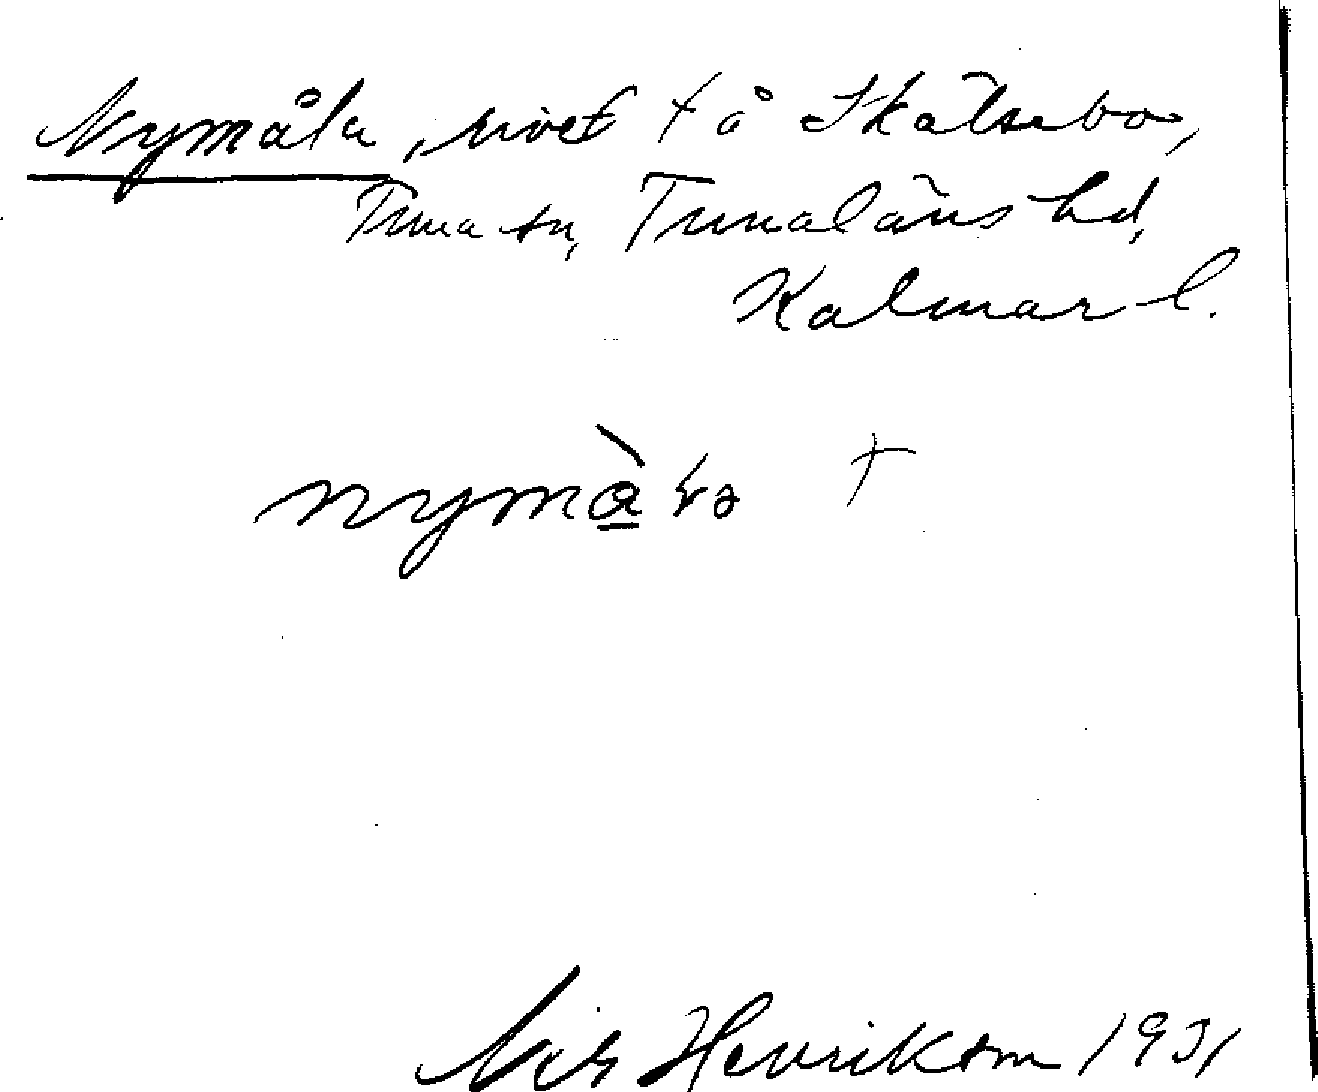 Nymåla, rivet t å Skälsebo,
Tuna sn, Tunaläns hd,
Kalmar l.
nymà̱ †
Nils Henriksson 1931